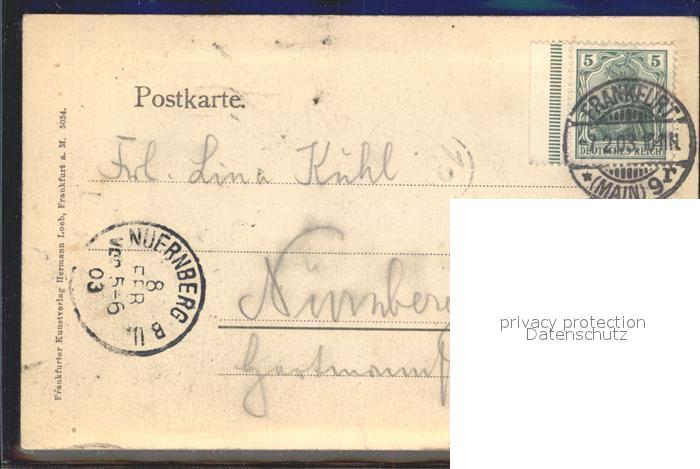 Postkarte.
5 5
DEUTSCHES REICH
FRANKFURT
(MAIN) 9
Frl. Lina Kühl
NUERNBERG B.U.
8
FEB
5-6
03
Nürnberg
privacy protection
Datenschutz
Frankfurter Kunstverlag Hermann Loeb, Frankfurt a. M. 5034.